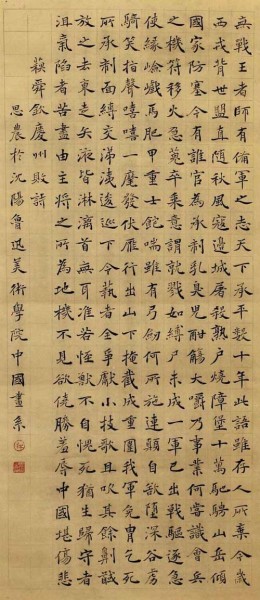 無戰王者師有備軍之志天下承平數十年此語雖存人所棄今歲
西戎背世盟直隨秋風寇邊城屠殺熟戶燒障堡十萬馳騁山岳傾
國家防塞今有誰官為承制乳臭兒酣觴大嚼乃事業何嘗識會兵
之機符移火急蒐卒乘意謂就戮如縛尸未成一軍已出戰驅逐急
使緣嶮巇馬肥甲重士飽喘雖有弓劍何所施連顛自欲墮深谷虜
騎笑指聲嘻嘻一麾發伏雁行出山下掩截成重圍我軍免冑乞死
所承制面縛交涕洟逡巡下令藝者全爭獻小技歌且吹其餘劓馘
放之去東走矢液皆淋漓首無耳准若怪獸不自愧死猶生歸守者
沮氣陷者苦盡由主將之所為地機不見欲僥勝羞辱中國堪傷悲
蘇舜欽慶州敗詩
思農於沈陽魯迅美術學院中國畫系